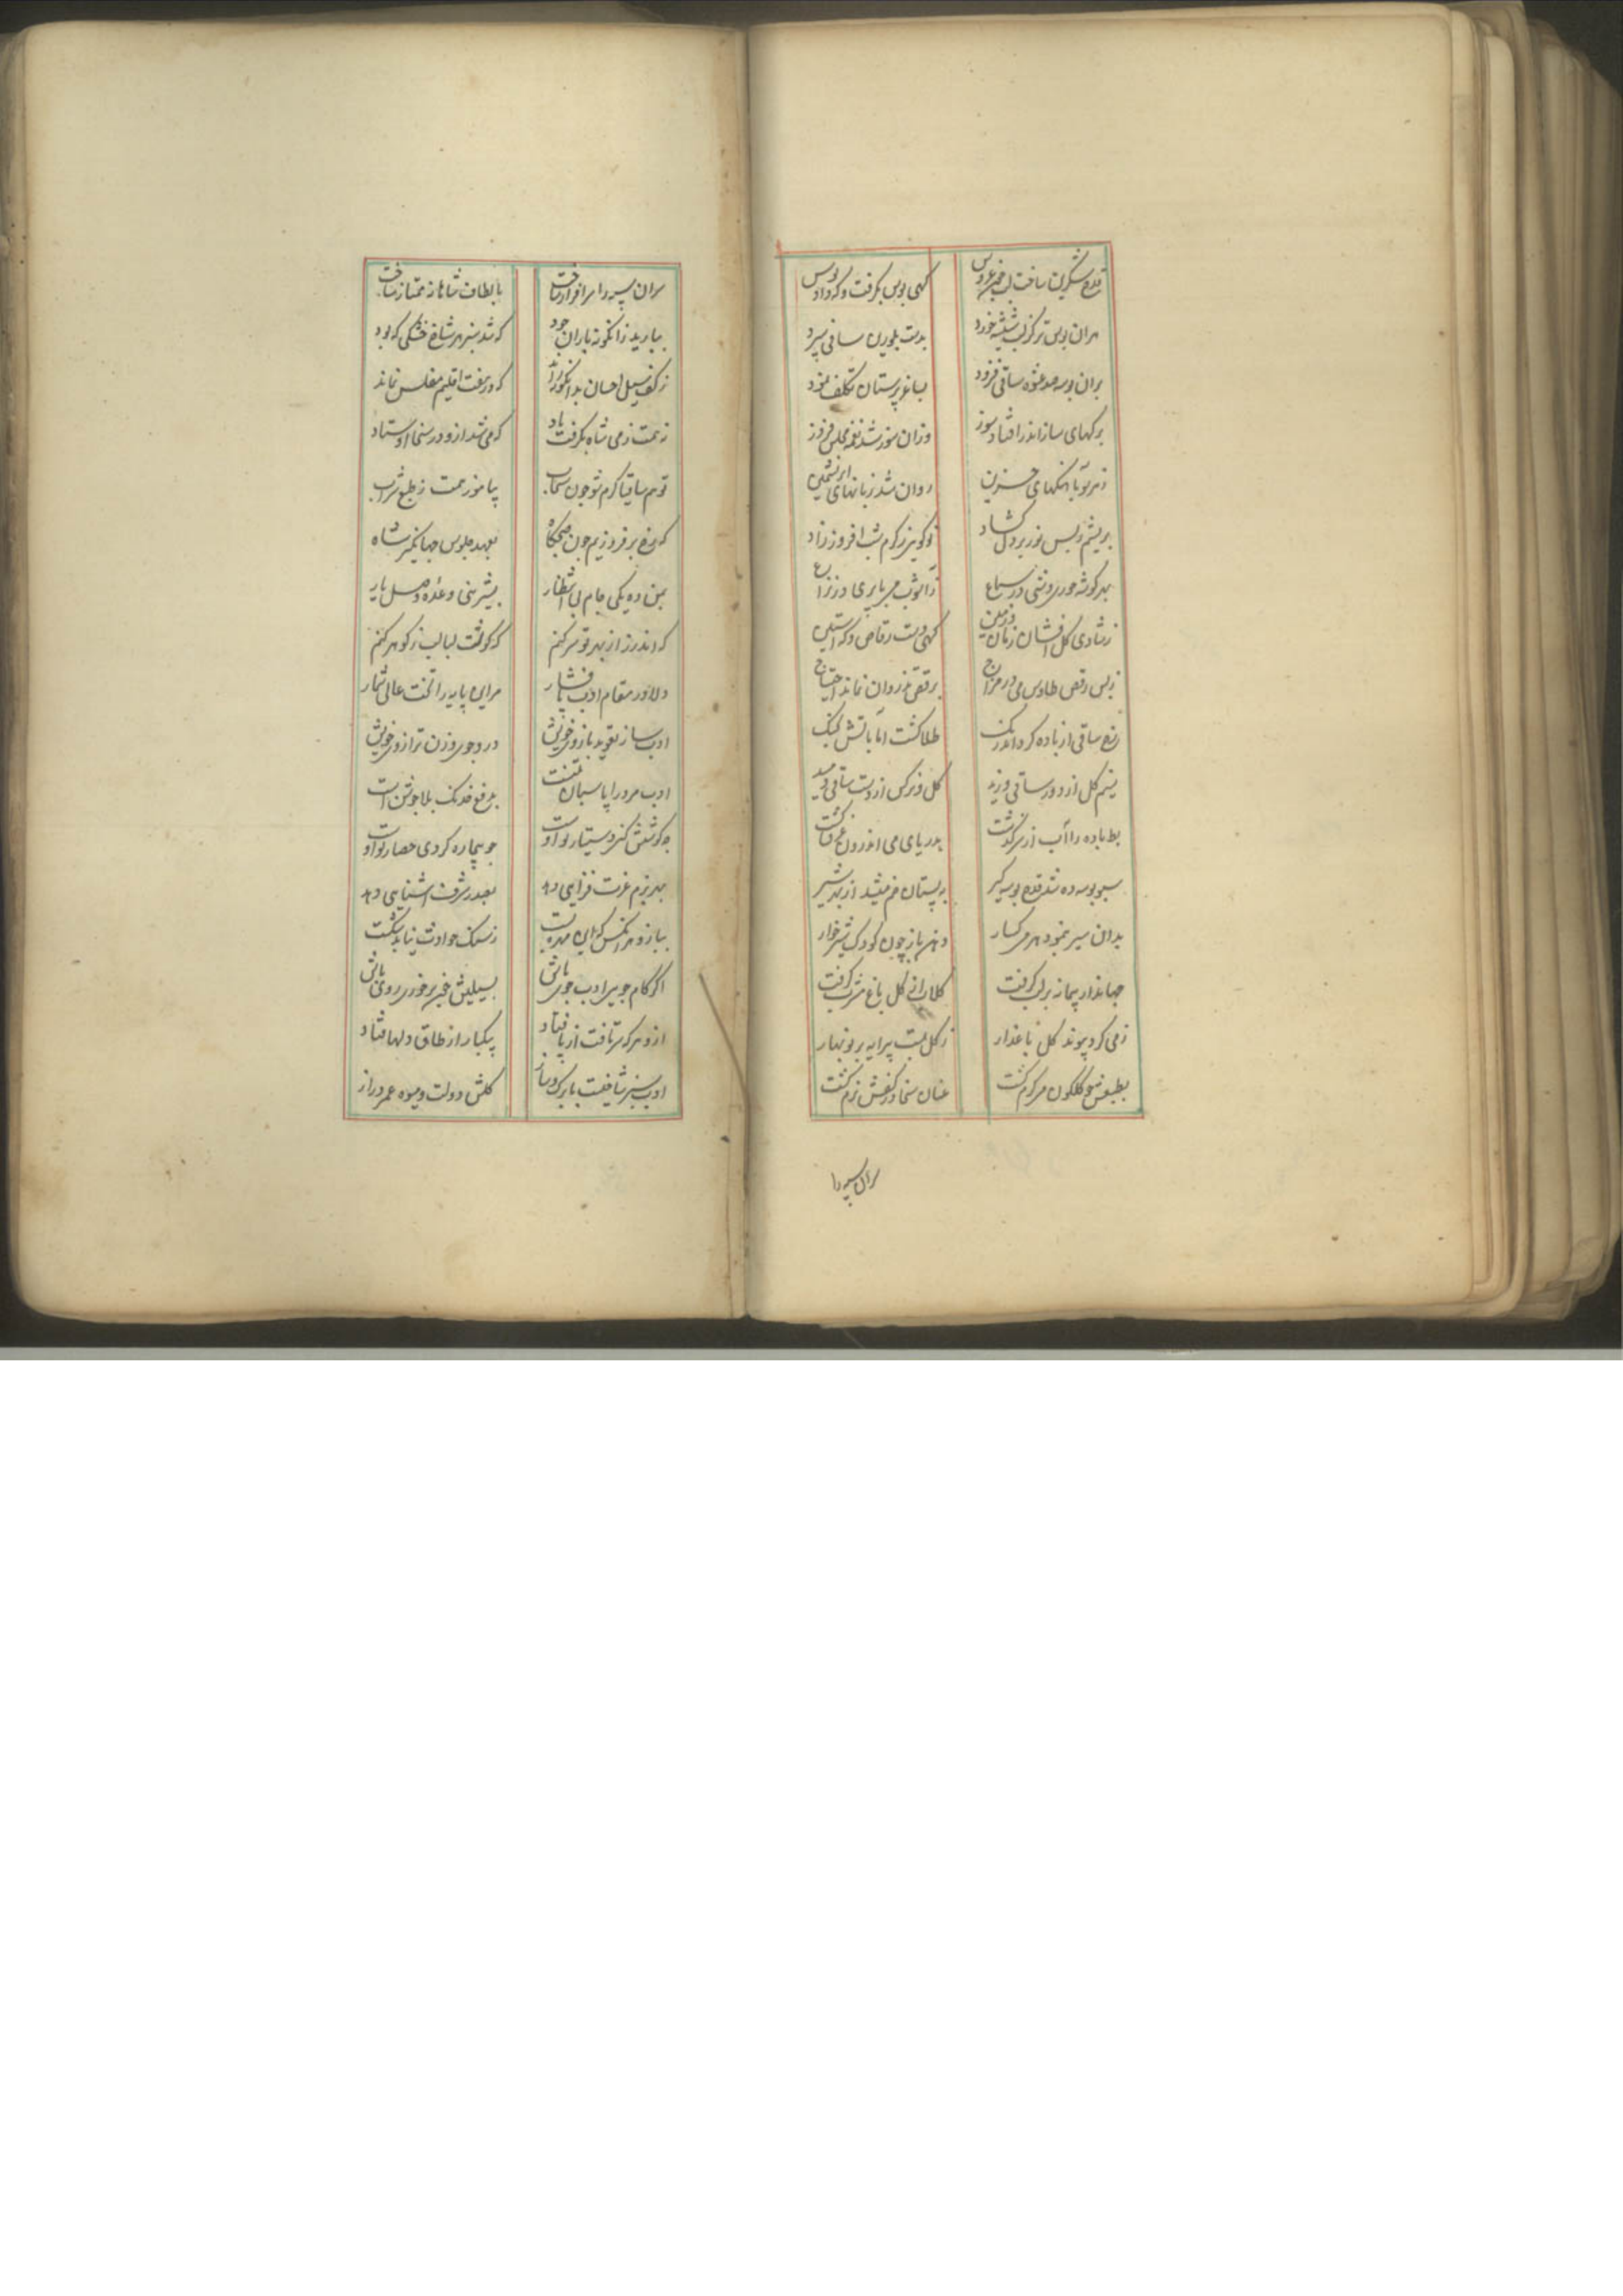 قدح شکرین ساخت لب چون عروس گهی بوس بگرفت و که داد بوس
هران بوس تر کز لب شیشه خورد بدست بلورین ساقی سپرد
بران بوسه صد عشوه ساقی فزود بساغرپرستان تکلف نمود
برکهای ساز اندر افتاد سوز وزان سوز شد نغمه مجلس فروز
ز هر سو باهنکهای حزین روان شد زبانهای ابریشمین
بریشم ز بس نور بر دل کشاد تو کویی ز کرم شب افروز زاد
بهر کوشه حوری وشی در سماع
ز شادی کل افشان زمان و زمین کهی دست رقاص و که آستین
ز بس رقص طاوس می در مزاج برقص تذروان نماند احتیاج
رخ ساقی از باده کرد اندر رنک طلا کشت اما باتش بجنک
نسیم کل از دور ساقی وزید کل و نرکس از دست ساقی دمید
بط باده را آب از سر کذشت بدریای می اندرون غرق کشت
سبو بوسه ده شد قدح بوسه کیر به پستان خم میشد از بهر شیر
بدان سیر نمود هر میکسار دهن باز چون کودک شیرخوار
جهاندار پیمانه بر لب کرفت کلاب از کل باغ مشرب کرفت
ز می کرد پیوند کل با عذار ز کل بست پیرایه بر نوبهار
بطبعش می کلکون سرکرم کشت عنان سخا در کفش نرم کشت
سران سپه را
سران سپه را سرافراز ساخت بالطاف شاهانه ممتاز ساخت
ببارید زانکونه باران جود که شد سبز هر شاخ خشکی که بود
ز کف سیل احسان بدانکونه راند که در هفت اقلیم مفلس نماند
ز همت ز می شاه بکرفت یاد که می شد ازو در سخا اوستاد
تو هم ساقیا کرم شو چون سحاب بیاموز همت ز طبع شراب
که رخ برفروزیم چون صبحکاه بعهد جلوس جهانکیر شاه
بمن ده یکی جام بی انتظار بشیرینی وعده وصل یار
که اندرز از بهر تو سر کنم که کوشت لبالب ز کوهر کنم
دلا در مقام ادب پا فشار مر این پایه را تخت عالی شمار
ادب ساز تعوید بازوی خویش در و جوی وزن ترازوی خویش
ادب مرد را پاسبان تنست بدفع خدنک بلا جوشن است
چو بیچاره کردی حصار تو اوست
بهر بزم عزت فزایی دهد بصدر شرف آشنایی دهد
ببازوی هرانکس که این مهره بست ز سنک حوادث نیابد شکست
اگر کام جویی ادب جوی باش
ازو هر که سر تافت از پا فتاد بیکبار از طاق دلها فتاد
ادب سبز شاخیست با برک و ساز کلش دولت و میوه عمر دراز